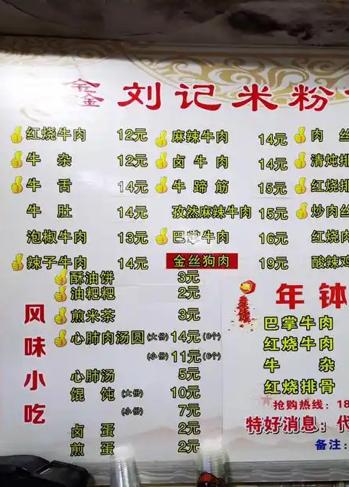 鑫 刘记米粉
红烧牛肉 12元 麻辣牛肉 14元 肉丝
牛杂 12元 卤牛肉 14元 清炖排
牛舌 14元 牛蹄筋 15元 红烧排
牛肚 14元 孜然麻辣牛肉 15元 炒肉丝
泡椒牛肉 13元 巴掌牛肉 16元 红烧肉
辣子牛肉 14元 金丝狗肉 19元 酸辣鸡
风味小吃
酥油饼 3元
油粑粑 2元
煎米茶 3元
心肺肉汤圆(大份) 14元(8个)
(小份) 11元(6个)
心肺汤 5元
馄饨(大份) 10元
(小份) 7元
卤蛋 2元
煎蛋 2元
年钵
巴掌牛肉
红烧牛肉
牛杂
红烧排骨
抢购热线：18
特好消息：代
备注：